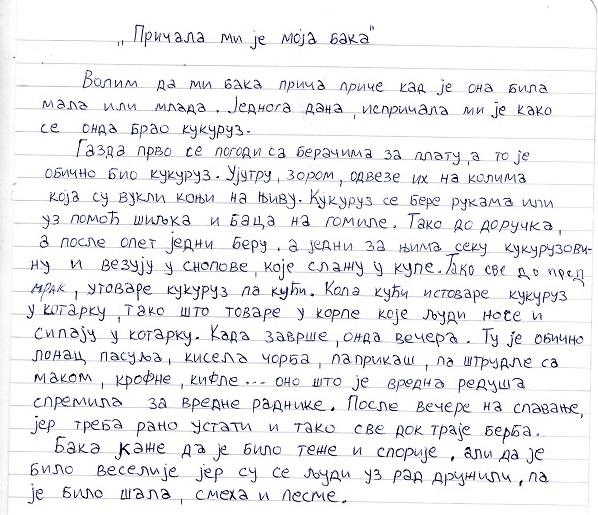 „Причала ми је моја бака"
Волим да ми бака прича приче кад је она била
мала или млада. Једнога дана, испричала ми је како
се онда брао кукуруз.
Газда прво се погоди са берачима за плату, а то је
обично био кукуруз. Ујутру, зором, одвезе их на колима
која су вукли коњи на њиву. Кукуруз се бере рукама или
уз помоћ шиљка и баца на гомиле. Тако до доручка,
а после опет једни беру, а једни за њима секу кукурузови-
ну и везују у снопове, које слажу у купе. Тако све до пред
мрак, утоваре кукуруз па кући. Кола кући истоваре кукуруз
у котарку, тако што товаре у корпе које људи носе и
сипају у котарку. Када заврше, онда вечера. Ту је обично
лонац пасуља, кисела чорба, паприкаш, па штрудле са
маком, крофне, кифле... оно што је вредна редуша
спремила за вредне раднике. После вечере на спавање,
јер треба рано устати и тако све док траје берба.
Бака каже да је било теже и спорије, али да је
било веселије јер су се људи уз рад дружили, па
је било шала, смеха и песме.